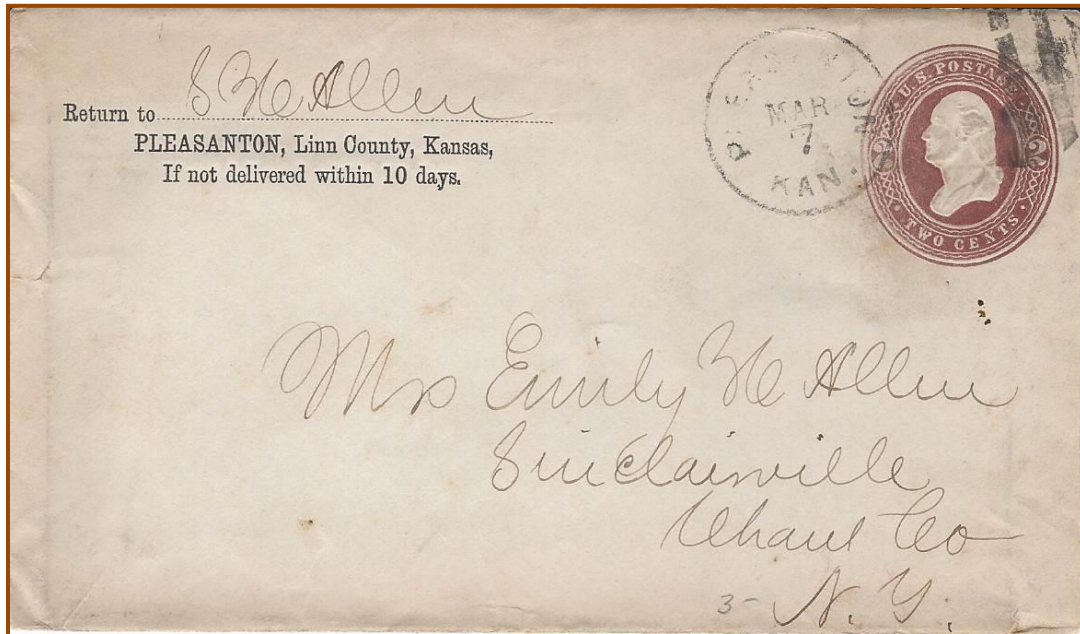 Return to S H Allen
PLEASANTON, Linn County, Kansas,
If not delivered within 10 days.
PLEASANTON
MAR
7
KAN.
U.S. POSTAGE
2 2
TWO CENTS
Mrs Emily H Allen
Sinclairville
Chaut Co
3- N. Y.